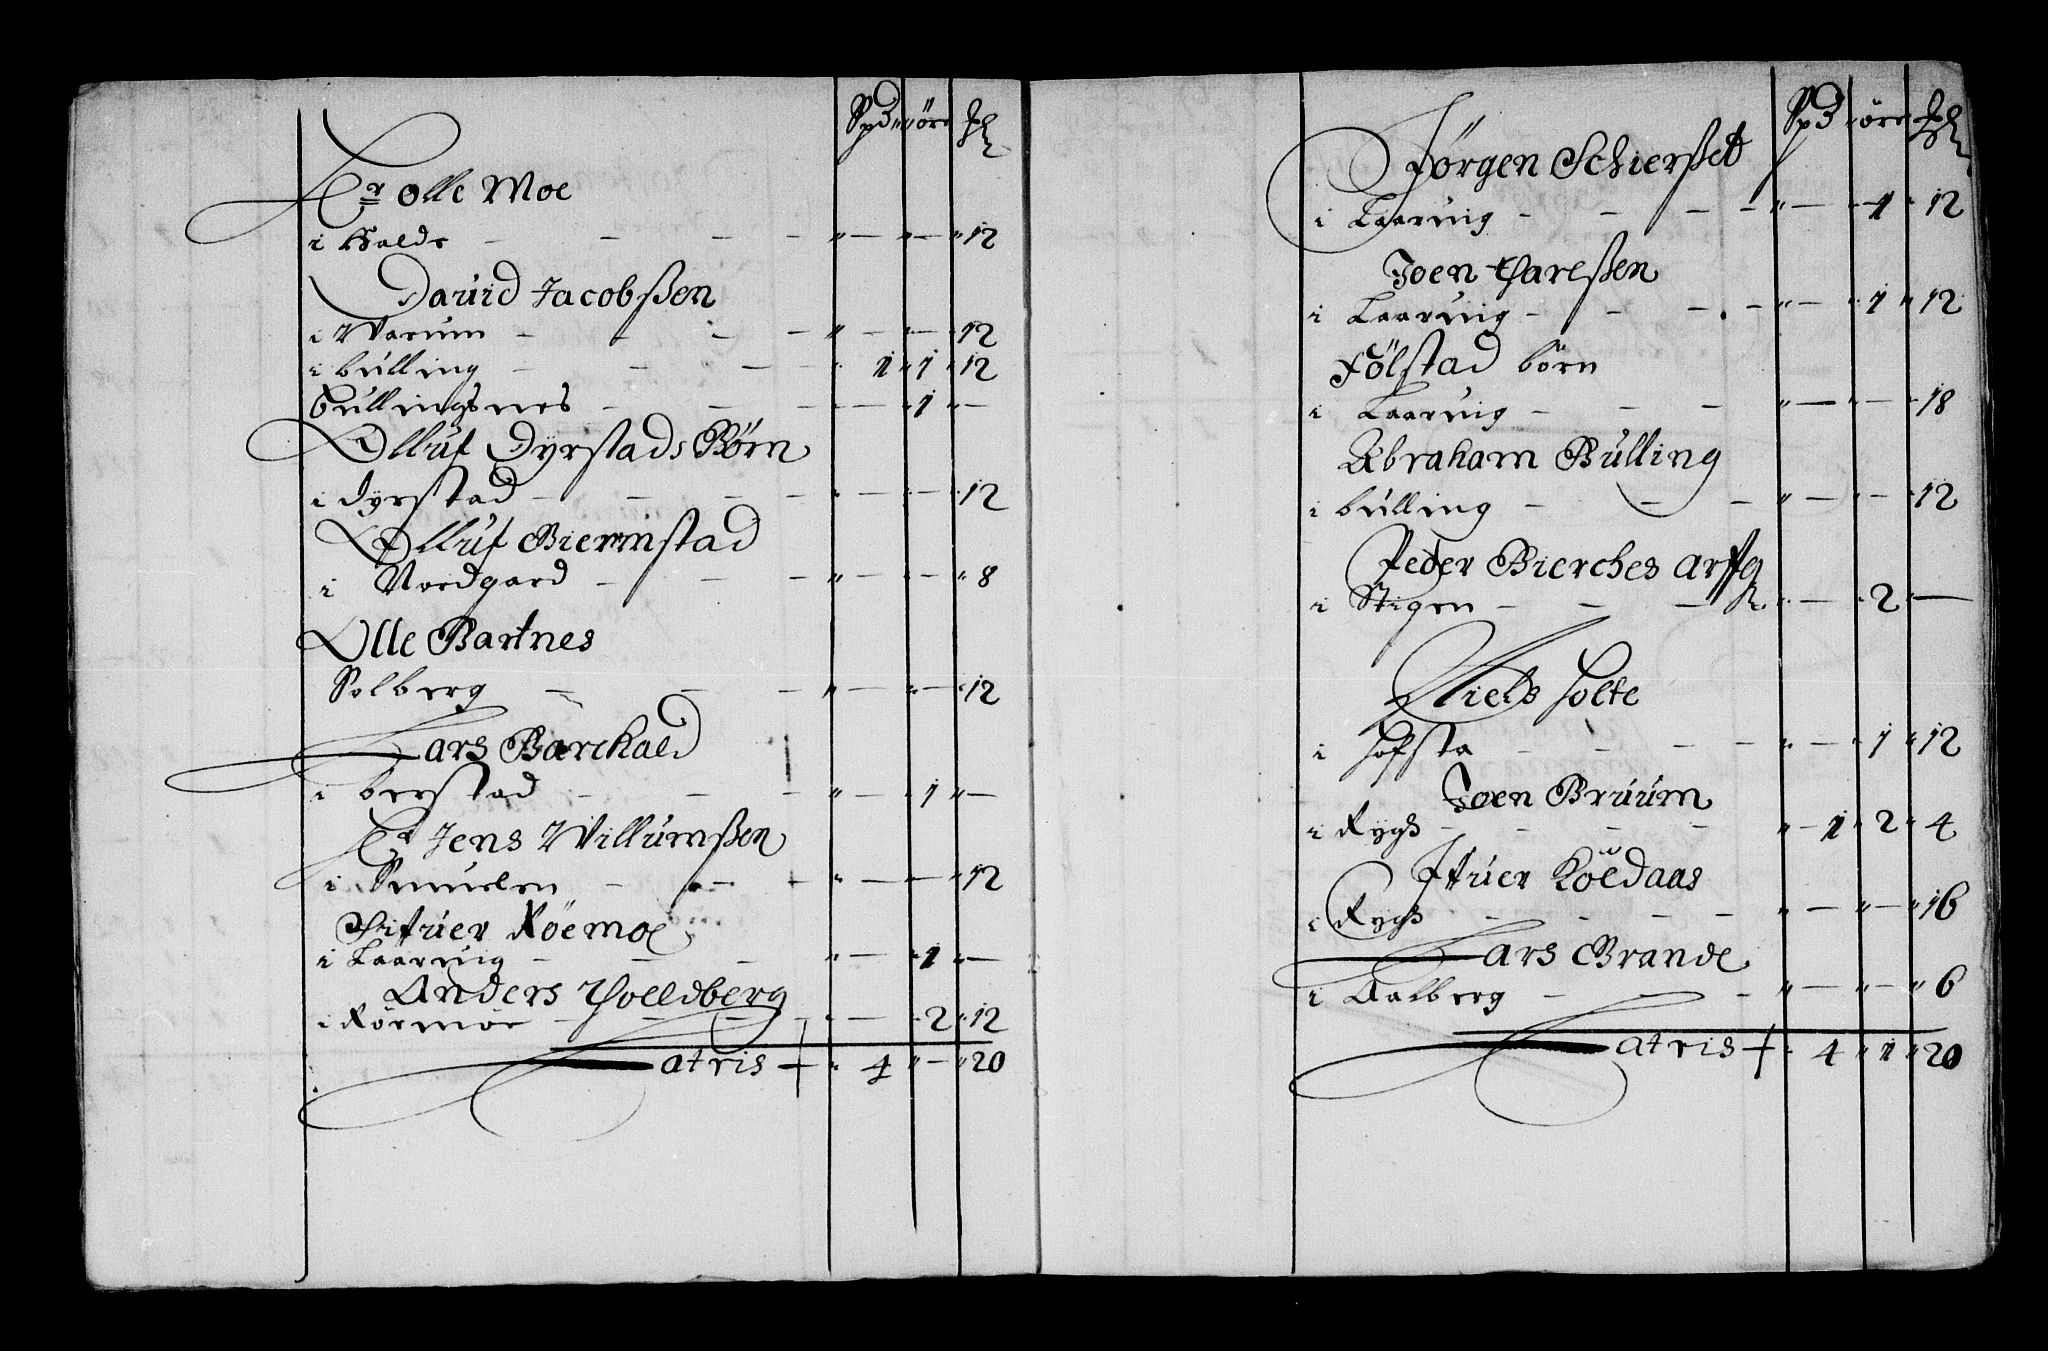 Spd öre
Hr olle Moe
i Halde - - - - " — " — " 12
David Jacobssen
i Warum - - - - " — " — " 12
i bülling - - - - " 1 " 1 " 12
büllingsnes - - - " — " 1 " —
Olluf Dyrstads Børn
i dyrstad - - - - " — " — " 12
Olluf Biermstad
i Nordgard - - - " — " — " 8
Olle Bartnes
Solberg - - - " — " — " 12
Lars Barchald
i berstad - - - " — " 1 " —
Hr Jens Willumssen
i Smuelen - - - " — " — " 12
Sifuer Röemoe
i Laaruig - - - " — " 1 " —
Anders Holldberg
i Rörmoe - - - - " — " 2 " 12
Latris " 4 " — " 20
Spd öre
Jörgen Schiersset
i Laaruig - - - - " — " 1 " 12
Joen Harlssen
i Laaruig - - - - " — " 1 " 12
Fölstad börn
i Laaruig - - - " — " — " 18
Abraham Bülling
i bülling - - - " — " — " 12
Peder Bierches
i Stigen - - - " — " 2 " —
Niels Holte
i hofsta - - - - " — " 1 " 12
Joen Bruum
i Rygh - - - - " — 1 " 2 " 4
Ifuer Köldaas
i Rygh - - - - " — " — " 16
Lars Brande
i Aalberg - - - " — " — " 6
Latris " 4 " 1 " 20